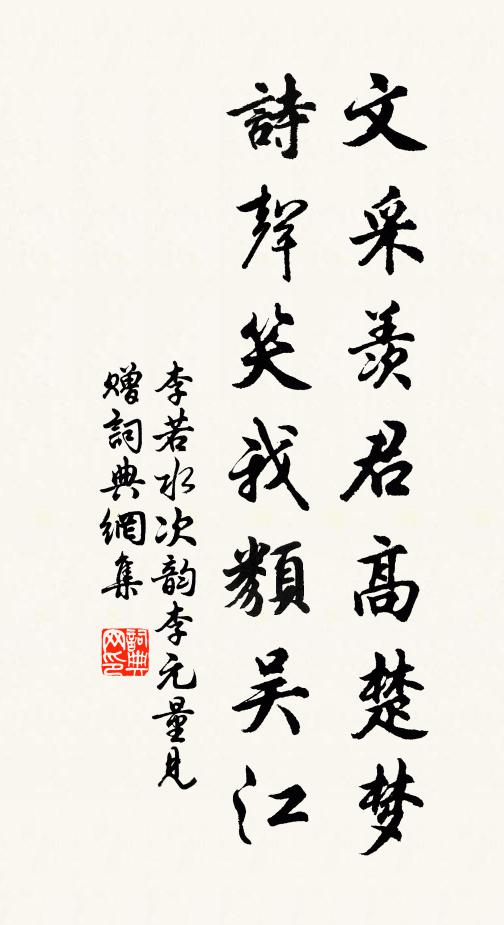 文采羨君高楚梦
詩聲笑我類吴江
李若水次韵李元量見
赠詞典網集
詞典
网印